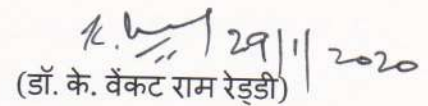 29/1/2020
(डॉ. के. वेंकट राम रेड्डी)